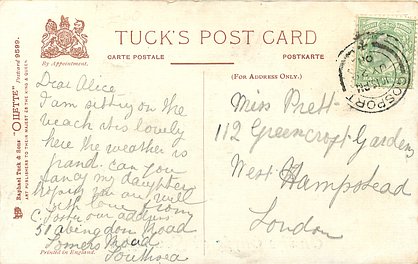 TUCK'S POST CARD
By Appointment.
CARTE POSTALE
POSTKARTE
(FOR ADDRESS ONLY.)
Raphael Tuck & Sons' "OILETTE" Postcard 9599.
ART PUBLISHERS TO THEIR MAJESTIES THE KING & QUEEN
Dear Alice
I am sitting on the
beach it is lovely
here the weather is
grand. Can you
fancy my daughter
Hoping you are well
with love from
C. Foster our address
58 Abingdon Road
Somers Road
Southsea
Printed in England.
GOSPORT
Miss Prett
112 Greencroft Gardens
West Hampstead
London